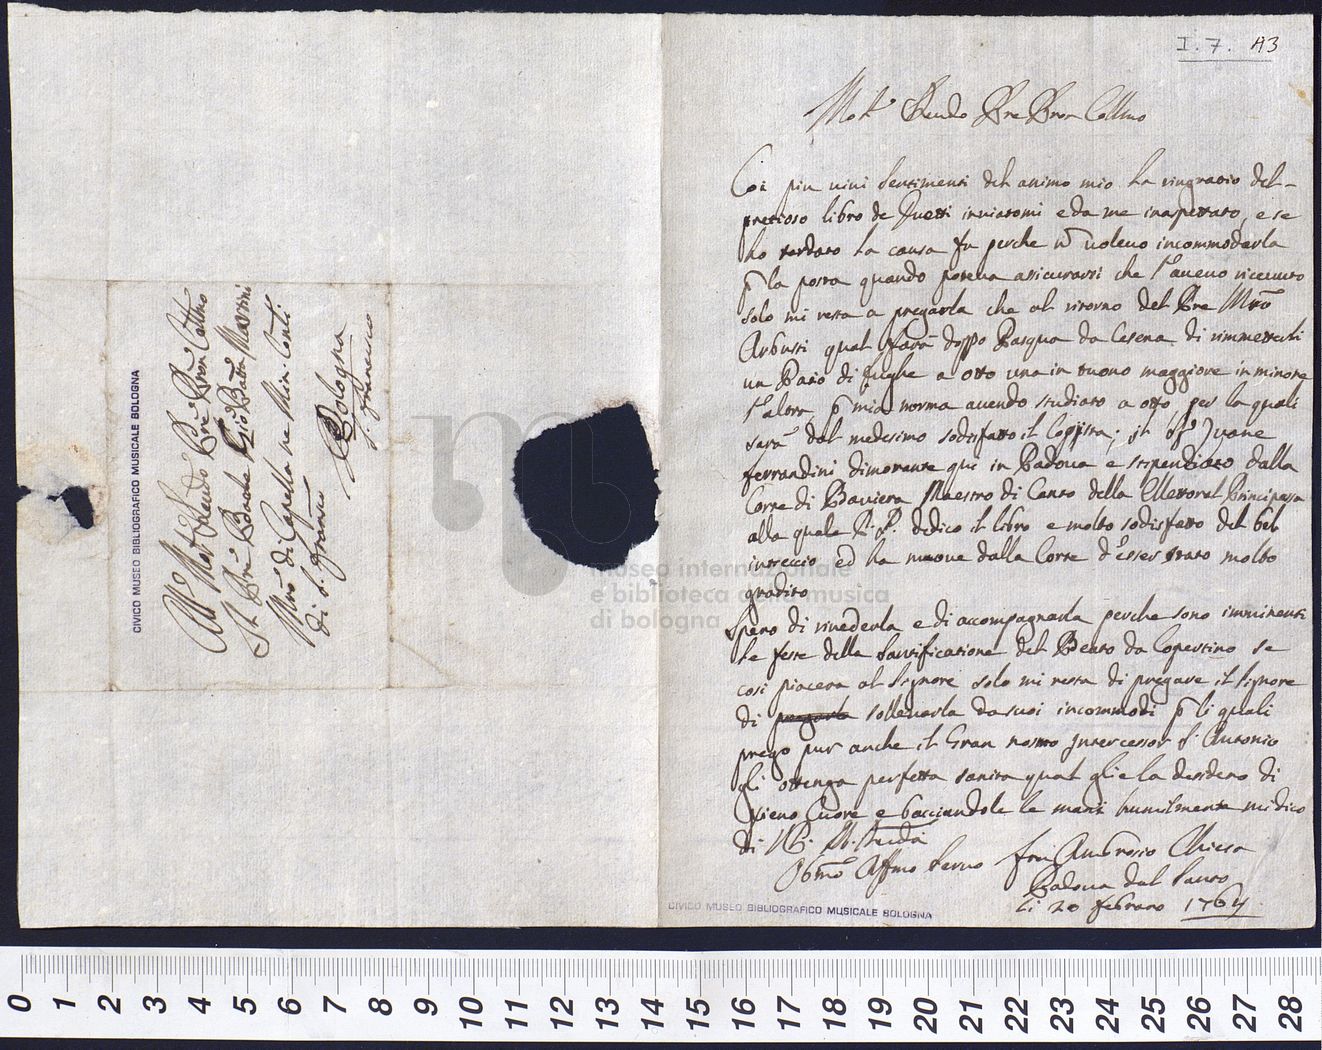 I. 7. A3
Mol.to Rendo Pre Pron Collmo
Coi piu vivi sentimenti del animo mio la ringratio del
pretioso libro de Duetti inviatomi e da me inaspettato, e se
ho tardato la causa fu perche n̄ volevo incommodarla
p la posta quando poteva asicurarsi che l'avevo ricevuto
solo mi resta a pregarla che al ritorno del Pre Mro
Arbusti qual sara doppo Pasqua da Cesena di rimmetterli
un Paro di fughe a otto una in tuono maggiore in minore
l'altra p mia norma avendo studiato a otto per la quali
sara dal medesimo sodisfatto il Coppista; il
ferrandini dimorante qui in Padova e stipendiato dalla
Corte di Baviera Maestro di Canto della Elettoral Principessa
alla quale P. P. dedico il libro e molto sodisfatto del bel
intreccio ed ha nuove dalla Corte d'Esser stato molto
gradito
Spero di rivederla e di accompagnarla perche sono imminenti
le feste della Santificatione del Beato da Copertino se
cosi piacera al Signore solo mi resta di pregare il Signore
di pregarla sollevarla da suoi incommodi p li quali
prego pur anche il Gran nostro Intercessor S. Antonio
gli ottenga perfetta sanita qual glie la desidero di
pieno Cuore e bacciandole le mani humilmente mi dico
di V. P. M. Reuda
Obmo Affmo Servo fra Ambrosio Chiesa
Padova dal Santo
li 20 febraro 1764
Al Mol.to Rendo Pre Pron Collmo
Il Pre Gio Batta Martini
Mro di Capella ne Min. Conti
di S. Franco
Bologna
S. Francesco
CIVICO MUSEO BIBLIOGRAFICO MUSICALE BOLOGNA
CIVICO MUSEO BIBLIOGRAFICO MUSICALE BOLOGNA
m
museo internazionale
e biblioteca della musica
di bologna
0 1 2 3 4 5 6 7 8 9 10 11 12 13 14 15 16 17 18 19 20 21 22 23 24 25 26 27 28